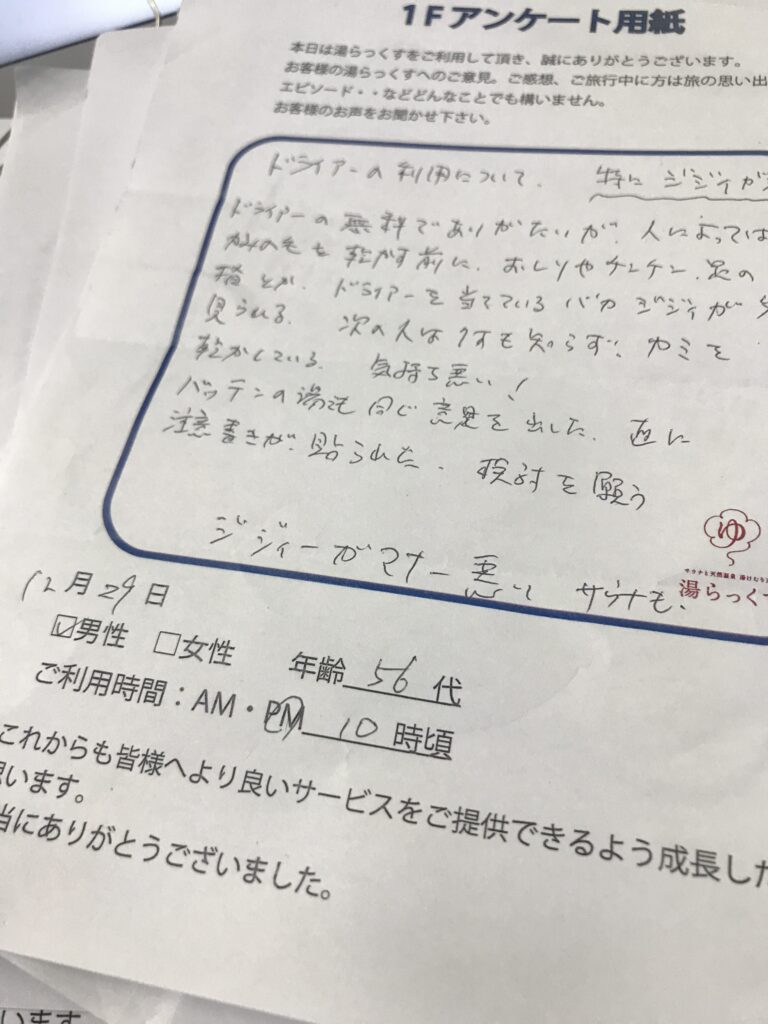 1Fアンケート用紙
本日は湯らっくすをご利用して頂き、誠にありがとうございます。
お客様の湯らっくすへのご意見。ご感想、ご旅行中に方は旅の思い出
エピソード・・などどんなことでも構いません。
お客様のお声をお聞かせ下さい。
ドライアーの利用について. 特に ジジイが
ドライアーの無料でありがたいが、人によっては
かみの毛を乾かす前に、おしりやチンチン、足の
指とか、ドライアーを当てているバカジジイが
見られる. 次の人は何も知らず、カミを
乾かしている. 気持ち悪い!
バッテンの湯でも同じ意見を出した. 直に
注意書きが、貼られた. 検討を願う
ジジィーがマナー悪い サウナも、
ゆ
サウナと天然温泉 湯けむり
湯らっく
12月29日
☑男性 □女性 年齢 56 代
ご利用時間:AM・PM 10 時頃
これからも皆様へより良いサービスをご提供できるよう成長した
思います。
当にありがとうございました。
います